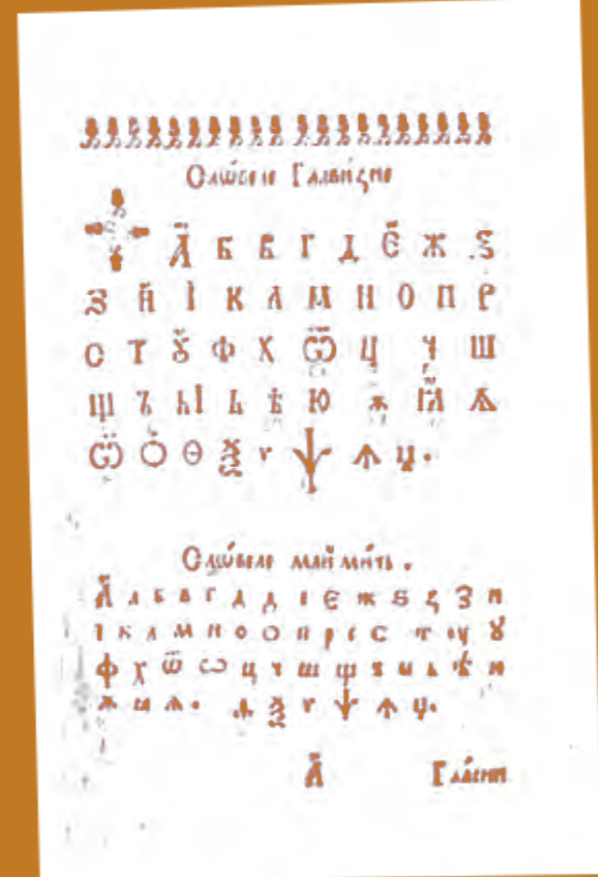 Слѡвеле Галвизне
А Б В Г Д Є Ж Ѕ
З И І К Л М Н О П Р
С Т Ꙋ Ф Х Ѿ Ц Ч Ш
Щ Ъ ЪІ Ь Ѣ Ю Ѫ Ꙗ Ѧ
Ѡ О Ѳ Ѯ Ѵ Ѱ Ꙟ Џ.
Слѡвеле май мичь.
А а б в г д д е Є ж ѕ з и
і к л м н о О п р с С т ꙋ
ф х ѿ ѡ ц ч ш щ ъ ы ь ѣ ю
ѫ ꙗ ѧ. ѯ ѵ ѱ ꙟ џ.
А Гласни